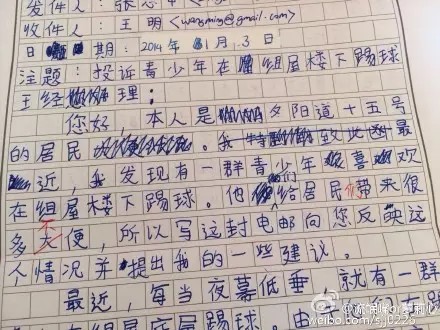 发件人：张
收件人：王明 <wangming@gmail.com>
日期：2014年 1月3日
主题：投诉青少年在组屋楼下踢球
王经理：
您好，本人是夕阳道十五号
的居民。我最
近，我发现有一群青少年喜欢
在组屋楼下踢球。他们给居民们带来很
多不便，所以写这封电邮向您反映这
人情况并提出我的一些建议。
最近，每当夜幕低垂，就有一群
在组屋底层踢球。由
weibo.com/